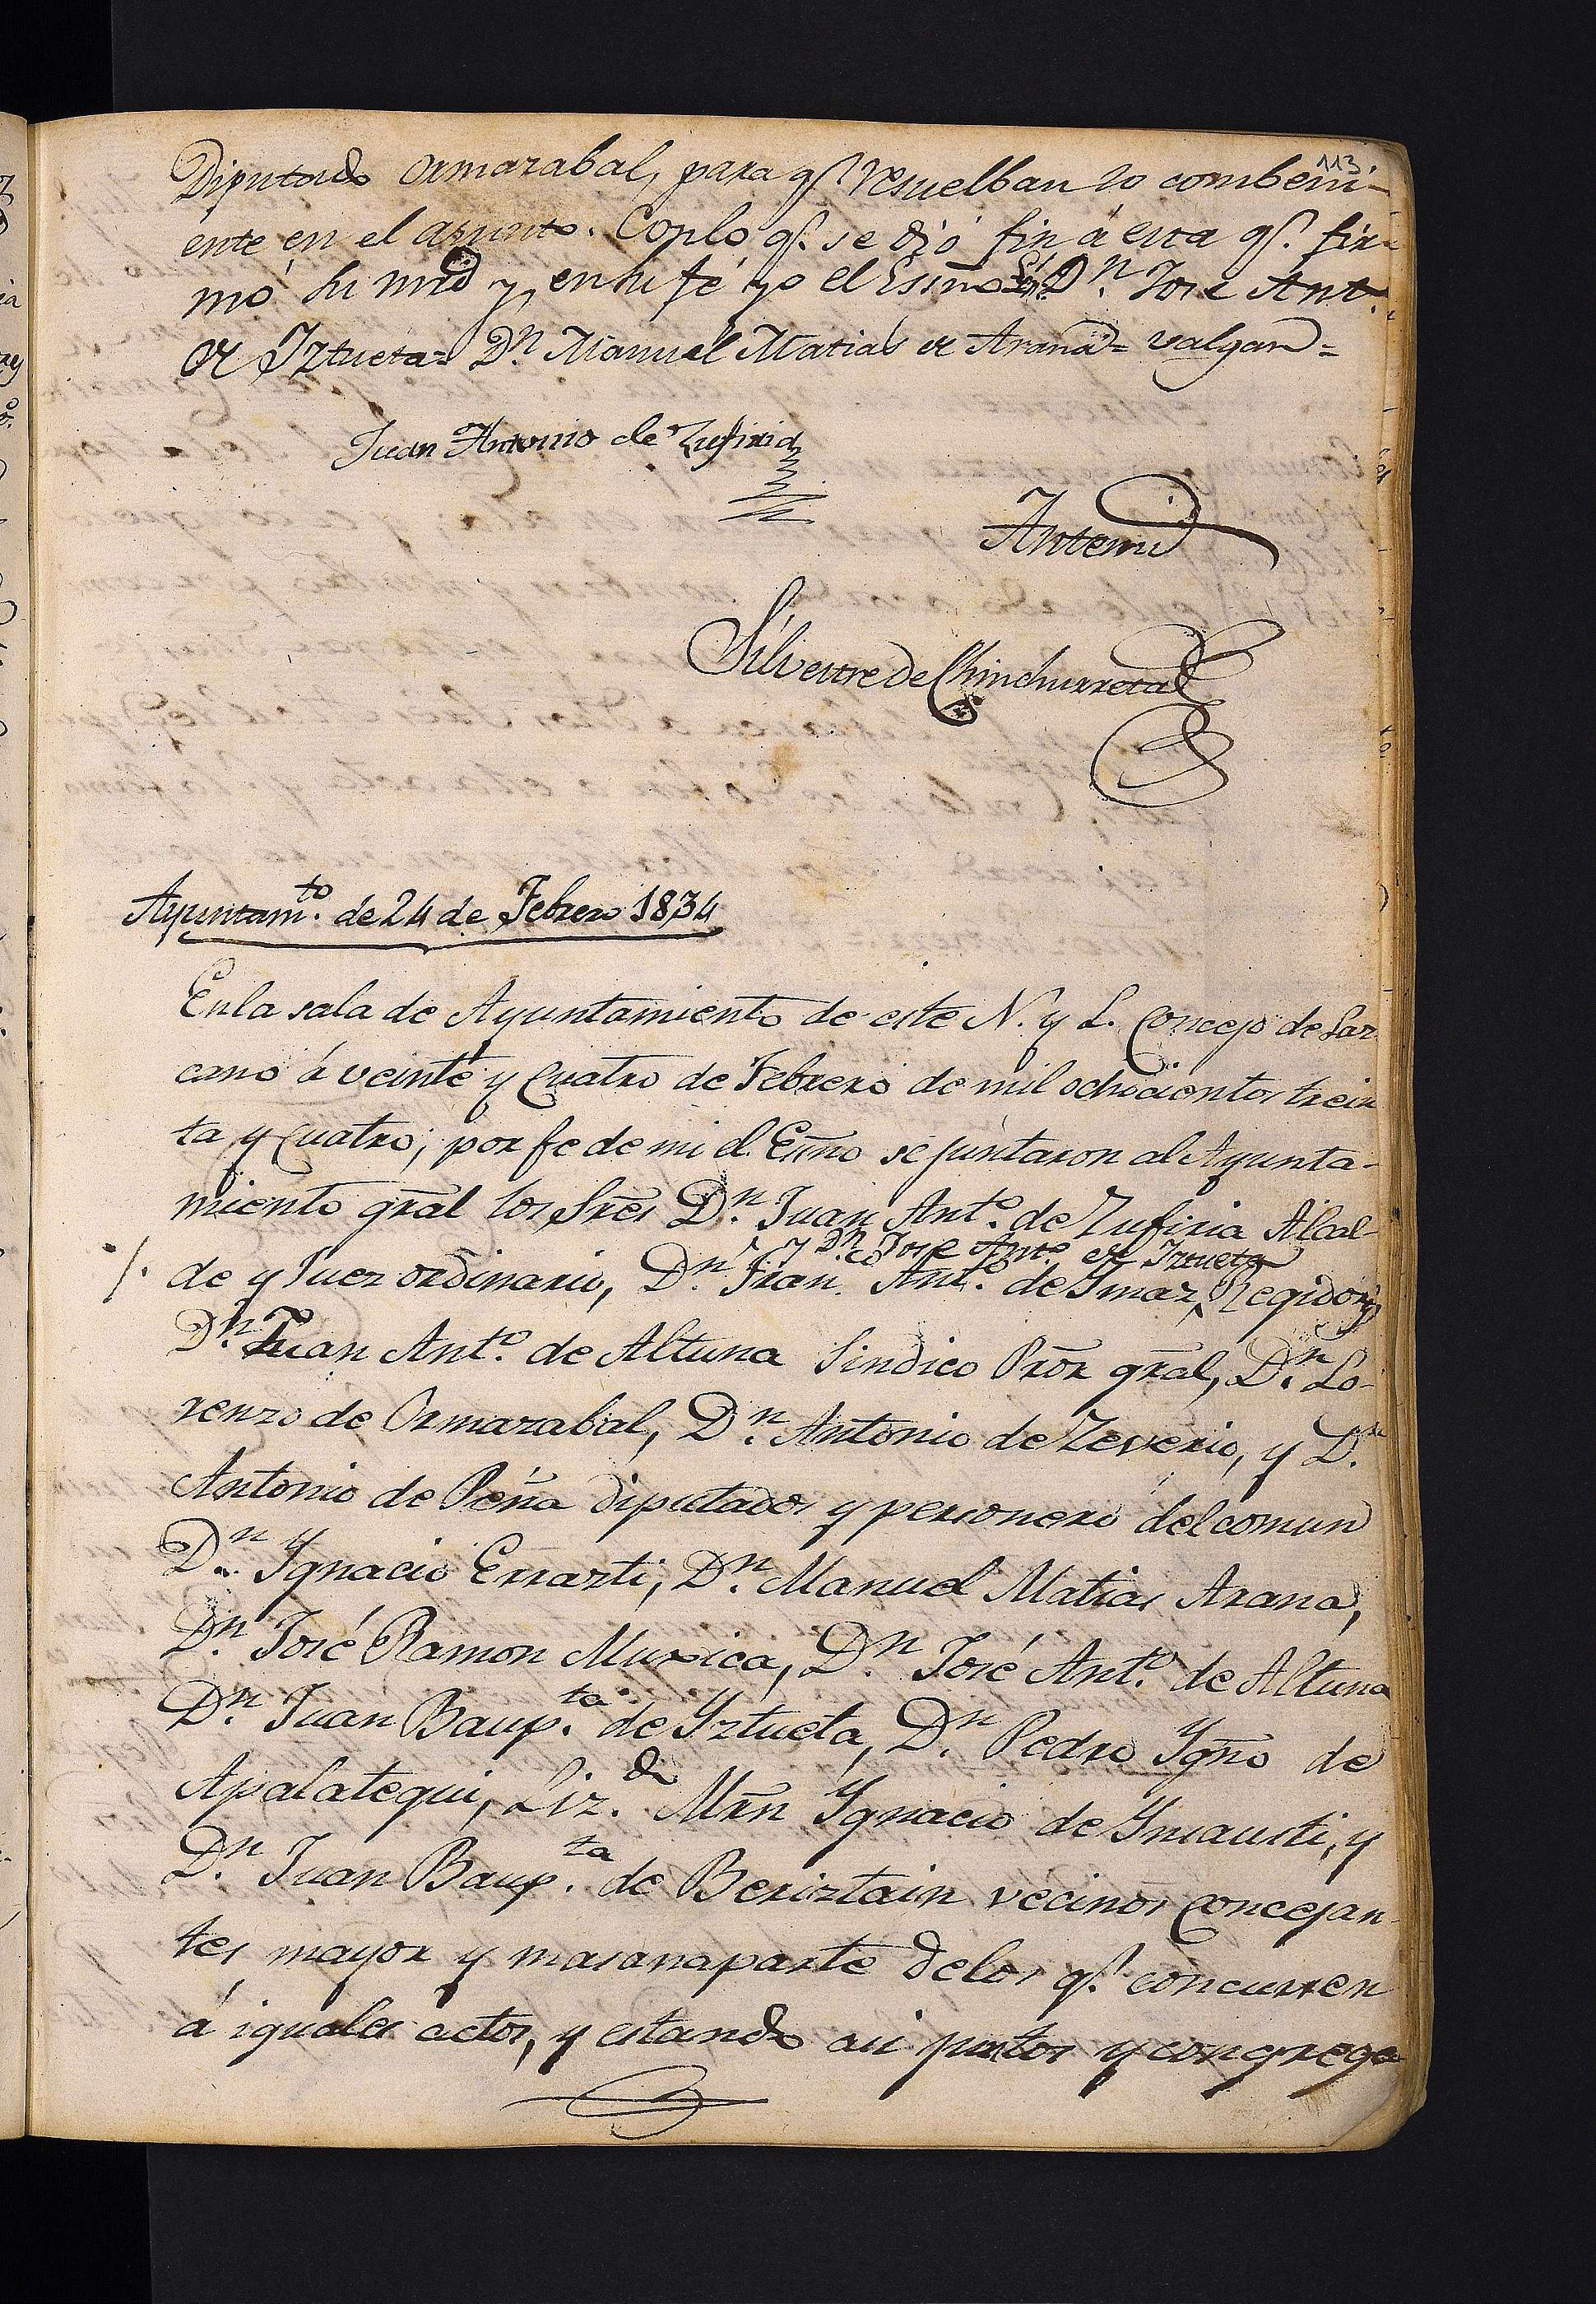 113
Diputado Ormazabal, para qe. resuelban lo combeni-
ente en el asunto. Conlo qe. se dió fin á esta qe. fir-
mó su mrd y en su fé yo el Essno = Dn. Jose Anto.
de Iztueta = Dn Manuel Matias de Arana = valgan =
Juan Antonio de Zufiria
Antemi
Silvestre de Chinchurreta
Ayuntamto. de 24 de Febrero 1834
Enla sala de Ayuntamiento de este N. y L. Concejo de Laz-
cano á veinte y Cuatro de Febrero de mil ochocientos trein
ta y Cuatro; por fe de mi el Esno se juntaron al Ayunta-
miento gral los Sres Dn. Juan Anto. de Zufiria Alcal-
y Dn Jose Anto. de Iztueta
de y Juez ordinario, Dn. Franco. Anto. de Ymaz, Regidores
Dn. Juan Anto. de Altuna Sindico Pror gral, Dn. Lo-
renzo de Ormazabal, Dn. Antonio de Zeverio, y Dn.
Antonio de Peña diputados y personero del comun
Dn. Ygnacio Errazti, Dn. Manuel Matias Arana,
Dn. José Ramon Muxica, Dn. José Anto. de Altuna
Dn. Juan Baupta. de Yztueta, Dn. Pedro Ygno de
Apalategui, Lizdo. Mrn Ygnacio de Ynsausti, y
Dn. Juan Baupta. de Beriztain vecinos Concejan-
tes mayor y masanaparte delos qe. concurren
á iguales actos, y estando asi juntos y congrega